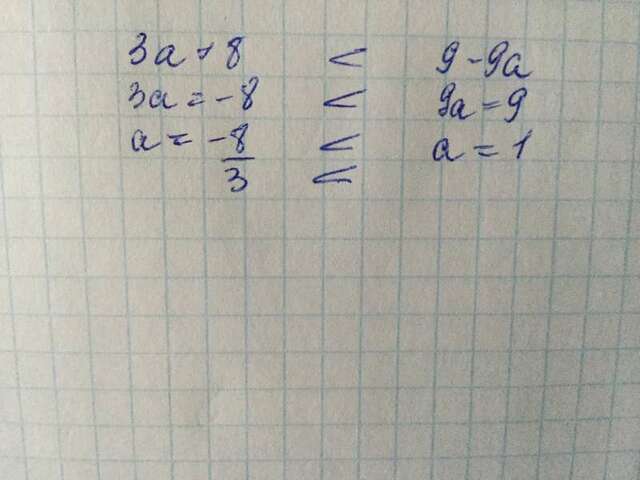 3a + 8 < 9 - 9a
3a = -8 < 9a = 9
a = -8/3 < a = 1
<